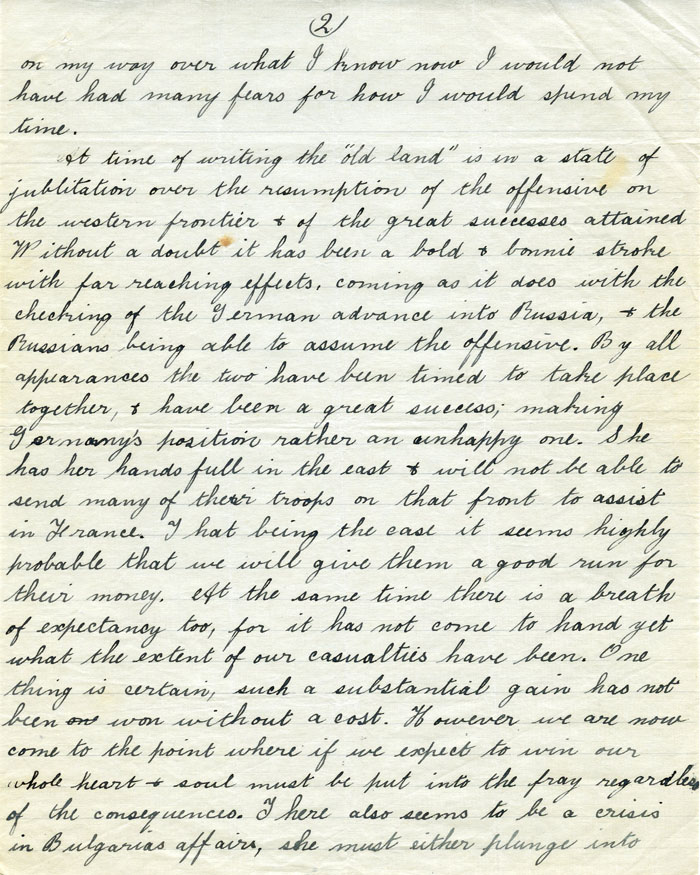 2
on my way over what I know now I would not
have had many fears for how I would spend my
time.
At time of writing the "old land" is in a state of
jublitation over the resumption of the offensive on
the western frontier & of the great successes attained
Without a doubt it has been a bold & bonnie stroke
with far reaching effects, coming as it does with the
checking of the German advance into Russia, & the
Russians being able to assume the offensive. By all
appearances the two have been timed to take place
together, & have been a great success; making
Germany's position rather an unhappy one. She
has her hands full in the east & will not be able to
send many of their troops on that front to assist
in France. That being the case it seems highly
probable that we will give them a good run for
their money. At the same time there is a breath
of expectancy too, for it has not come to hand yet
what the extent of our casualties have been. One
thing is certain, such a substantial gain has not
been won without a cost. However we are now
come to the point where if we expect to win our
whole heart & soul must be put into the fray regardless
of the consequences. There also seems to be a crisis
in Bulgarias affairs, she must either plunge into